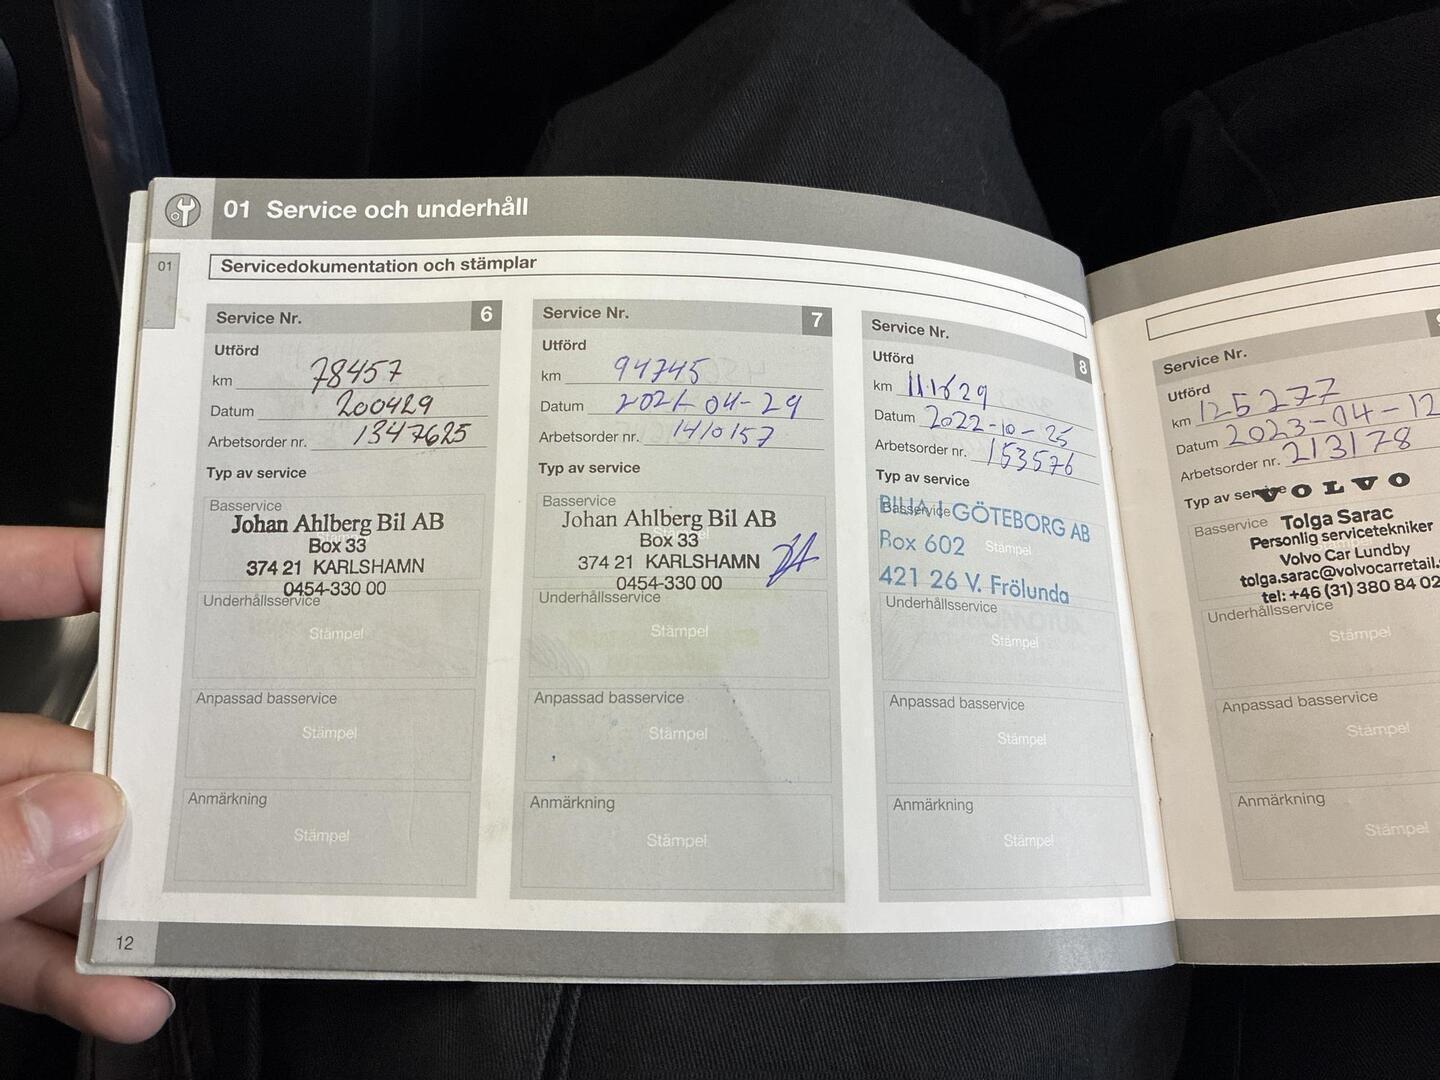 01 Service och underhåll
01
Servicedokumentation och stämplar
Service Nr. 6
Utförd
km 78457
Datum 200429
Arbetsorder nr. 1347625
Typ av service
Basservice
Johan Ahlberg Bil AB
Box 33
374 21 KARLSHAMN
0454-330 00
Underhållsservice
Stämpel
Anpassad basservice
Stämpel
Anmärkning
Stämpel
Service Nr. 7
Utförd
km 94745
Datum 2021-04-29
Arbetsorder nr. 1410157
Typ av service
Basservice
Johan Ahlberg Bil AB
Box 33
374 21 KARLSHAMN
0454-330 00
Underhållsservice
Stämpel
Anpassad basservice
Stämpel
Anmärkning
Stämpel
Service Nr. 8
Utförd
km 111629
Datum 2022-10-25
Arbetsorder nr. 153576
Typ av service
Basservice
BILIA I GÖTEBORG AB
Box 602
Stämpel
421 26 V. Frölunda
Underhållsservice
Stämpel
Anpassad basservice
Stämpel
Anmärkning
Stämpel
12
Service Nr.
Utförd
km 125277
Datum 2023-04-12
Arbetsorder nr. 213178
Typ av service
VOLVO
Basservice
Tolga Sarac
Personlig servicetekniker
Volvo Car Lundby
tolga.sarac@volvocarretail.
tel: +46 (31) 380 84 02
Underhållsservice
Stämpel
Anpassad basservice
Stämpel
Anmärkning
Stämpel